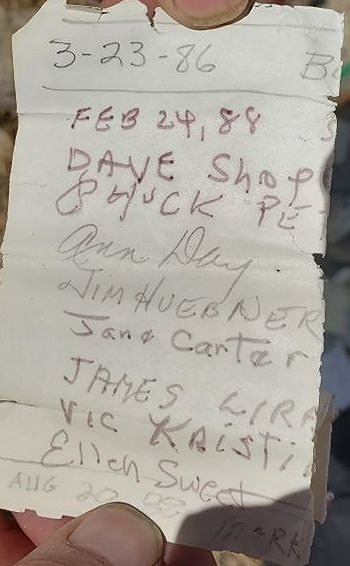 3-23-86 B
FEB 24, 88 S
DAVE Shop
CHUCK PE
Ann Day
JIM HUEBNER
Jane Carter
JAMES LIRA
VIC KRISTI
Ellen Sweet
AUG 20
MARK